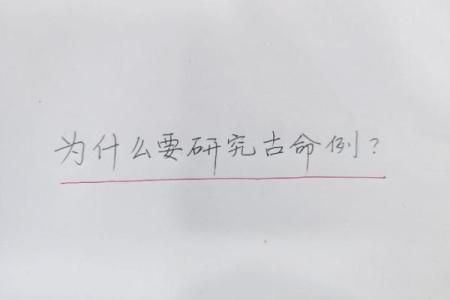 为什么要研究古命例?